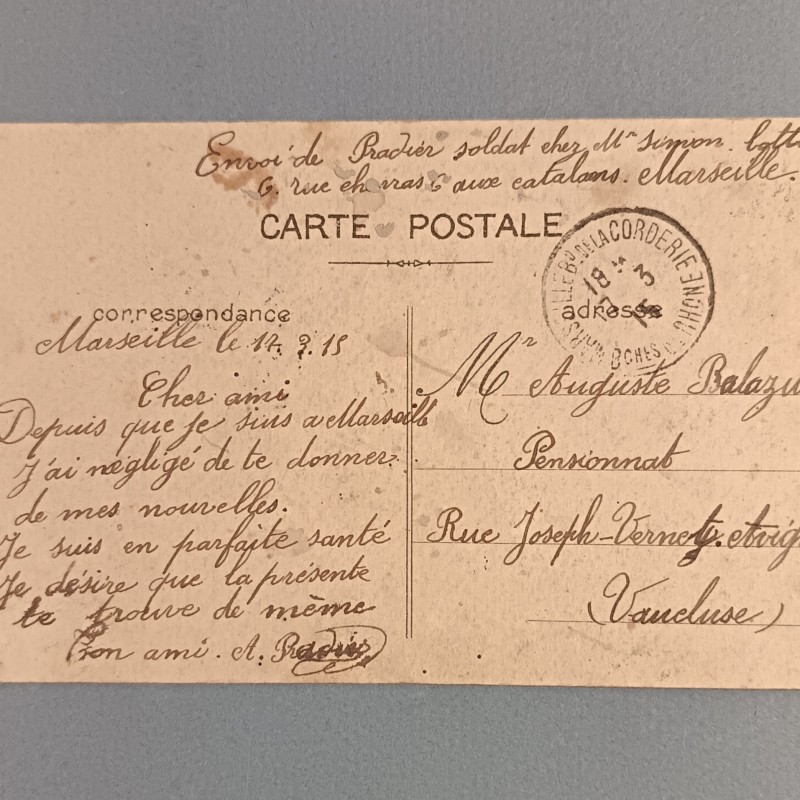 Envoi de Pradier soldat chez Mr Simon.
6. rue 6 aux catalans. Marseille.
CARTE POSTALE
DE LA CORDERIE
18
3
15
BCHES DU RHONE
correspondance
adresse
Marseille le 14.3.15
Cher ami
Depuis que je suis a Marseill
J'ai négligé de te donner
de mes nouvelles.
Je suis en parfaite santé
Je désire que la présente
te trouve de même
Ton ami. A. Pradier
Mr Auguste Balazu
Pensionnat
Rue Joseph-Vernet. Avig
(Vaucluse)